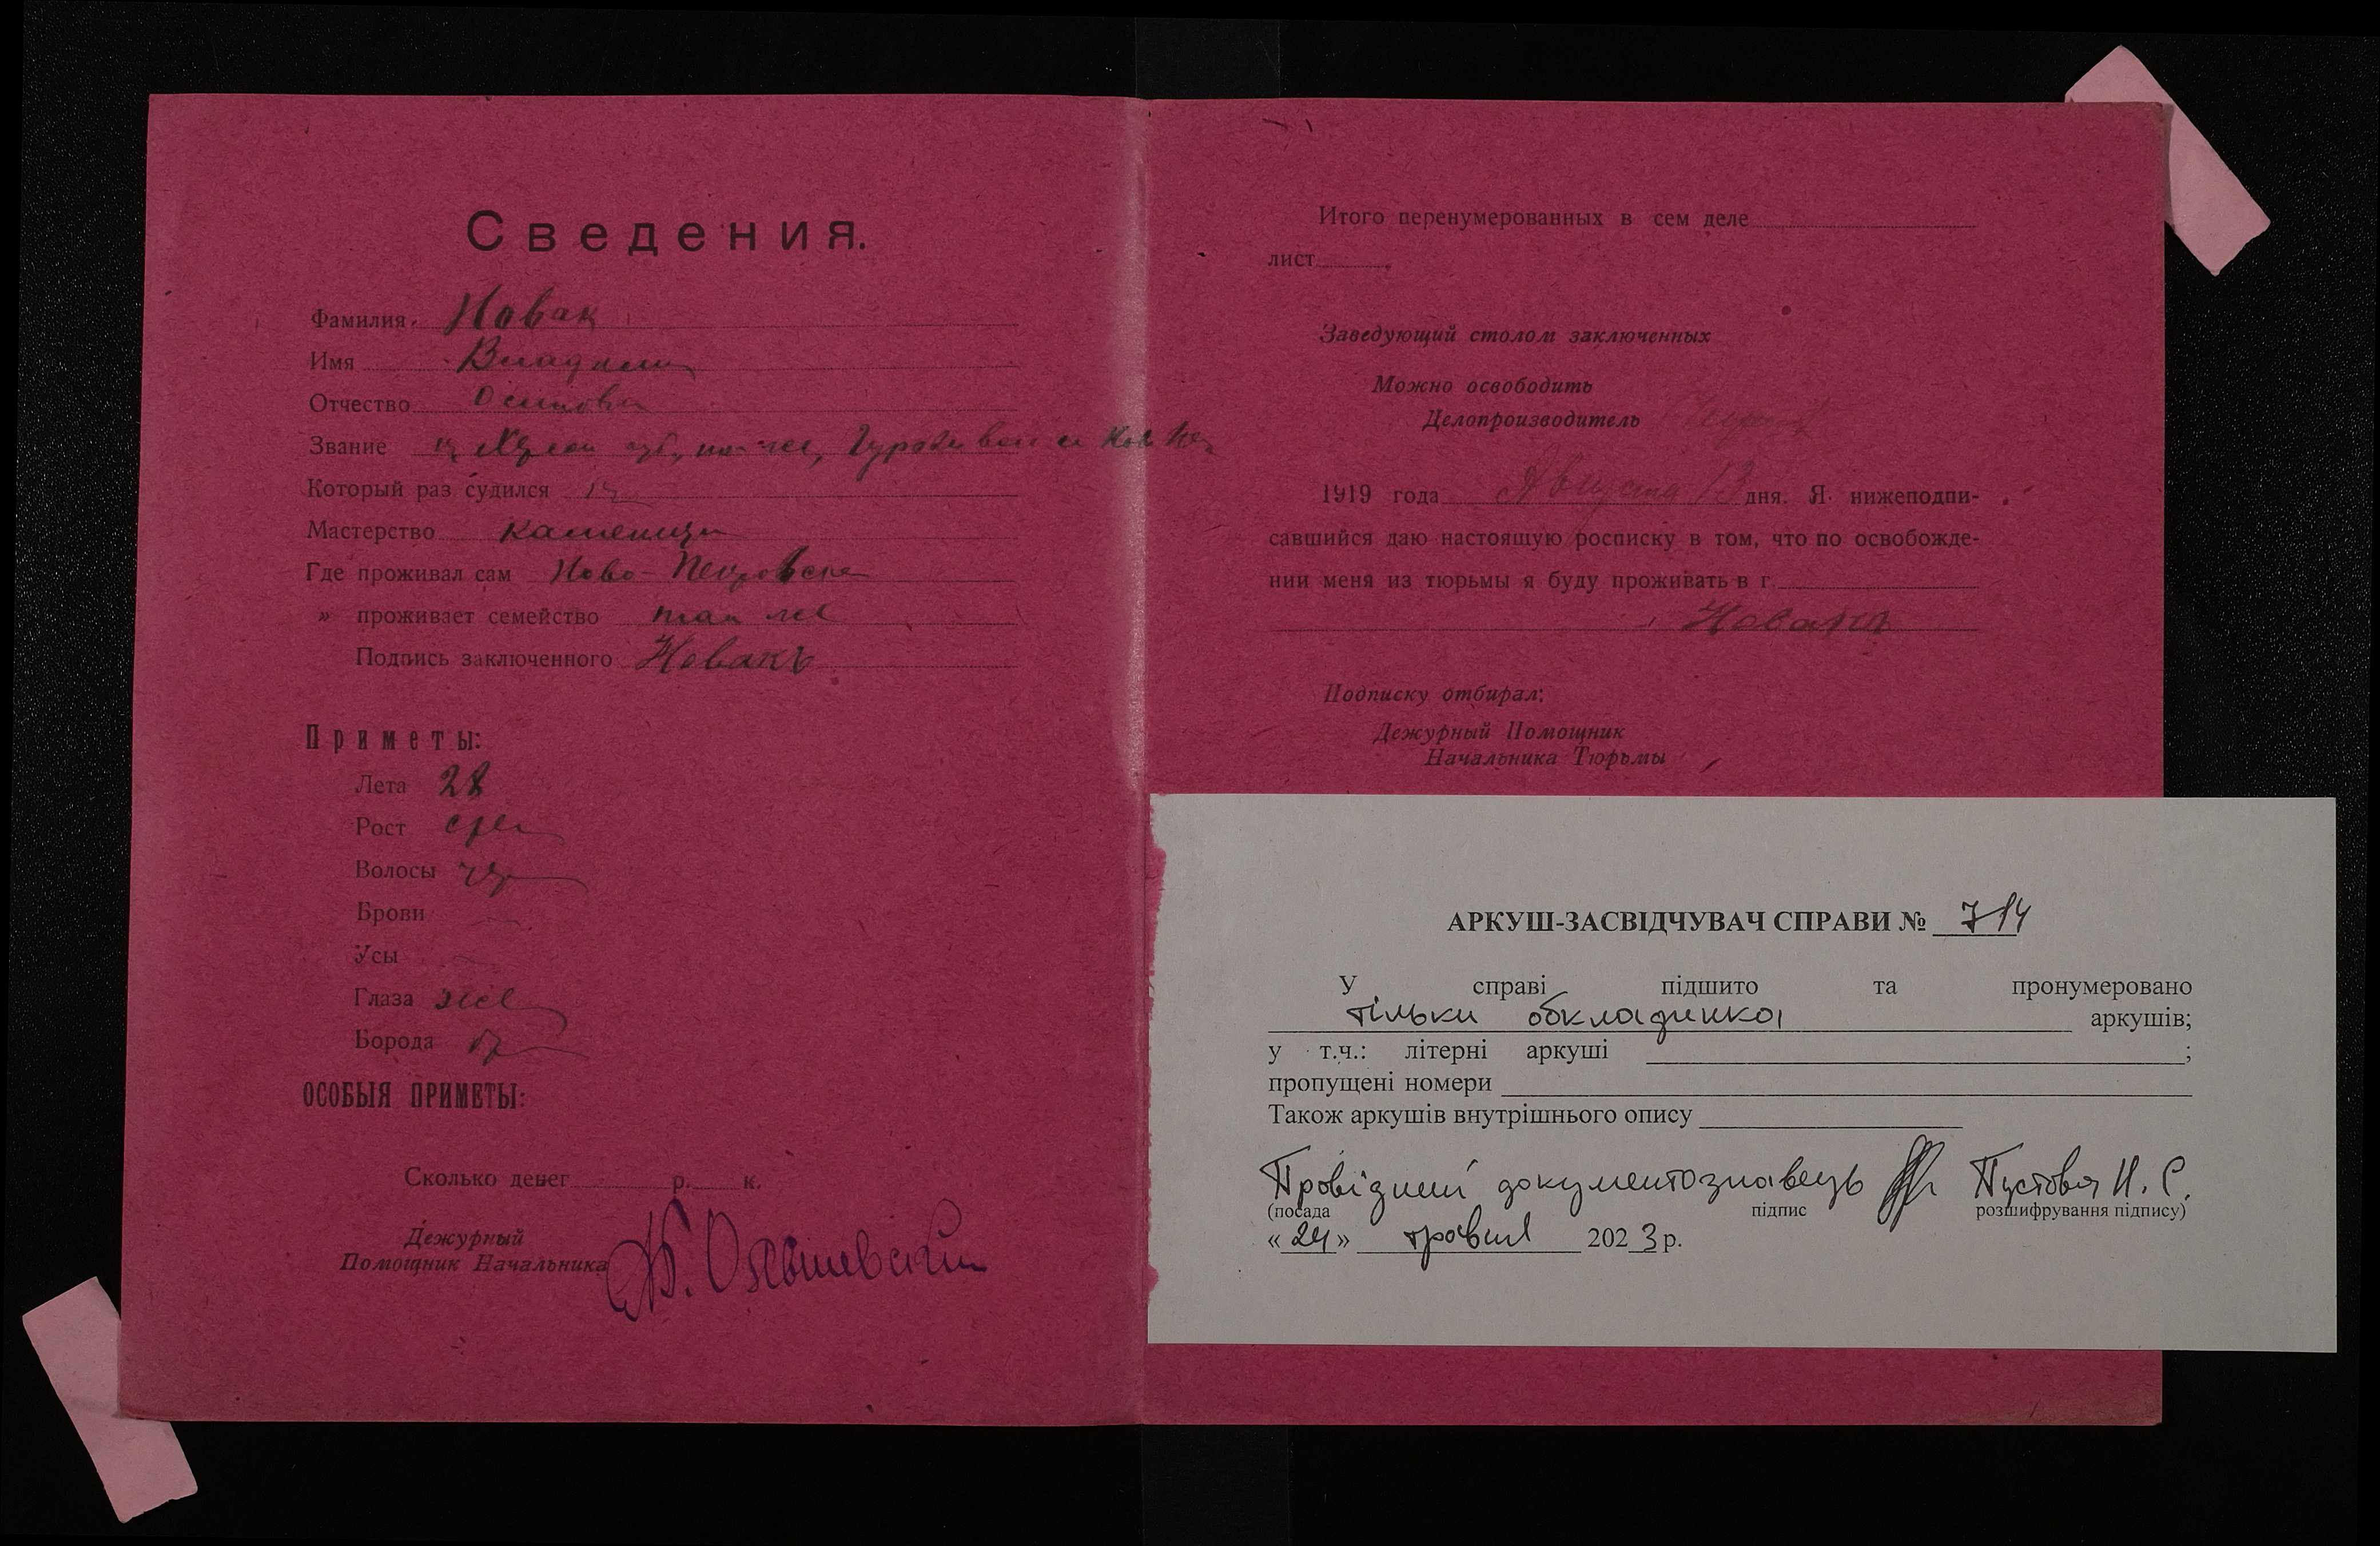 Сведения.
Фамилия Новак
Имя Владим
Отчество Осипович
Звание
Который раз судился
Мастерство каменщик
Где проживал сам Ново-Петровске
» проживает семейство там же
Подпись заключенного Новакъ
Приметы:
Лета 28
Рост сре
Волосы
Брови
Усы
Глаза
Борода бр
ОСОБЫЯ ПРИМЕТЫ:
Сколько денег р. к.
Дежурный
Помощник Начальника
Итого перенумерованных в сем деле
лист
Заведующий столом заключенных
Можно освободить
Делопроизводитель
1919 года Августа 13 дня. Я нижеподпи-
савшийся даю настоящую росписку в том, что по освобожде-
нии меня из тюрьмы я буду проживать в г.
Новакъ
Подписку отбирал:
Дежурный Помощник
Начальника Тюрьмы
АРКУШ-ЗАСВІДЧУВАЧ СПРАВИ № 714
У справі підшито та пронумеровано
тільки обкладинка аркушів;
у т.ч.: літерні аркуші ;
пропущені номери
Також аркушів внутрішнього опису
Провідний документознавець Пустова Н. С.
(посада підпис розшифрування підпису)
«24» травня 2023 р.